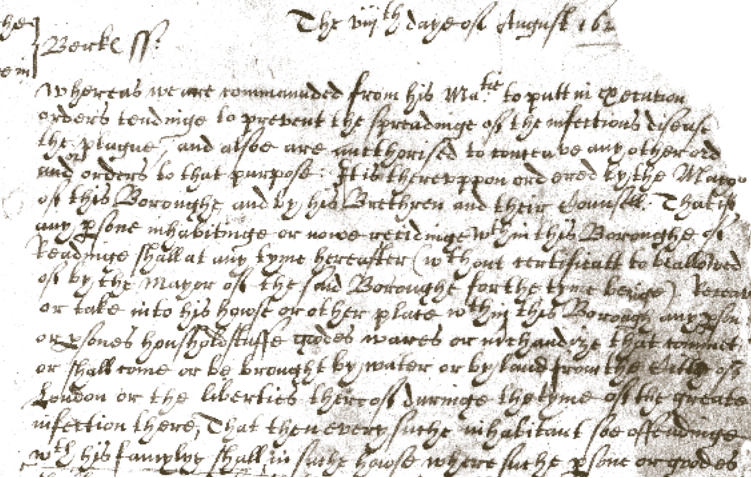 The viijth daye of August 162
he
Berks ss.
ein
Whereas we are commaunded from his Matie to putt in Execution
orders tendinge to prevent the spreadinge of the infectious disease
the plague, and alsoe are authorised to conceave any other ord
and orders to that purpose: It is thereuppon ordered by the Mayor
of this Boroughe, and by his Brethren and their Counsell. That if
any psone inhabitinge or nowe recidinge wthin this Boroughe of
Readinge shall at any tyme hereafter (wthout certificatt to be allowed
of by the Mayor of the said Boroughe for the tyme beinge)
or take into his howse or other place wthin this Borough any pson
or psones housholdstuffe goodes wares or mchandize that commeth
or shall come or be brought by water or by land from the Cittie of
London or the liberties thereof duringe the tyme of the greate
infection there, That then every suche inhabitant soe offendinge
wth his famylye shall in suche howse where suche psone or goodes